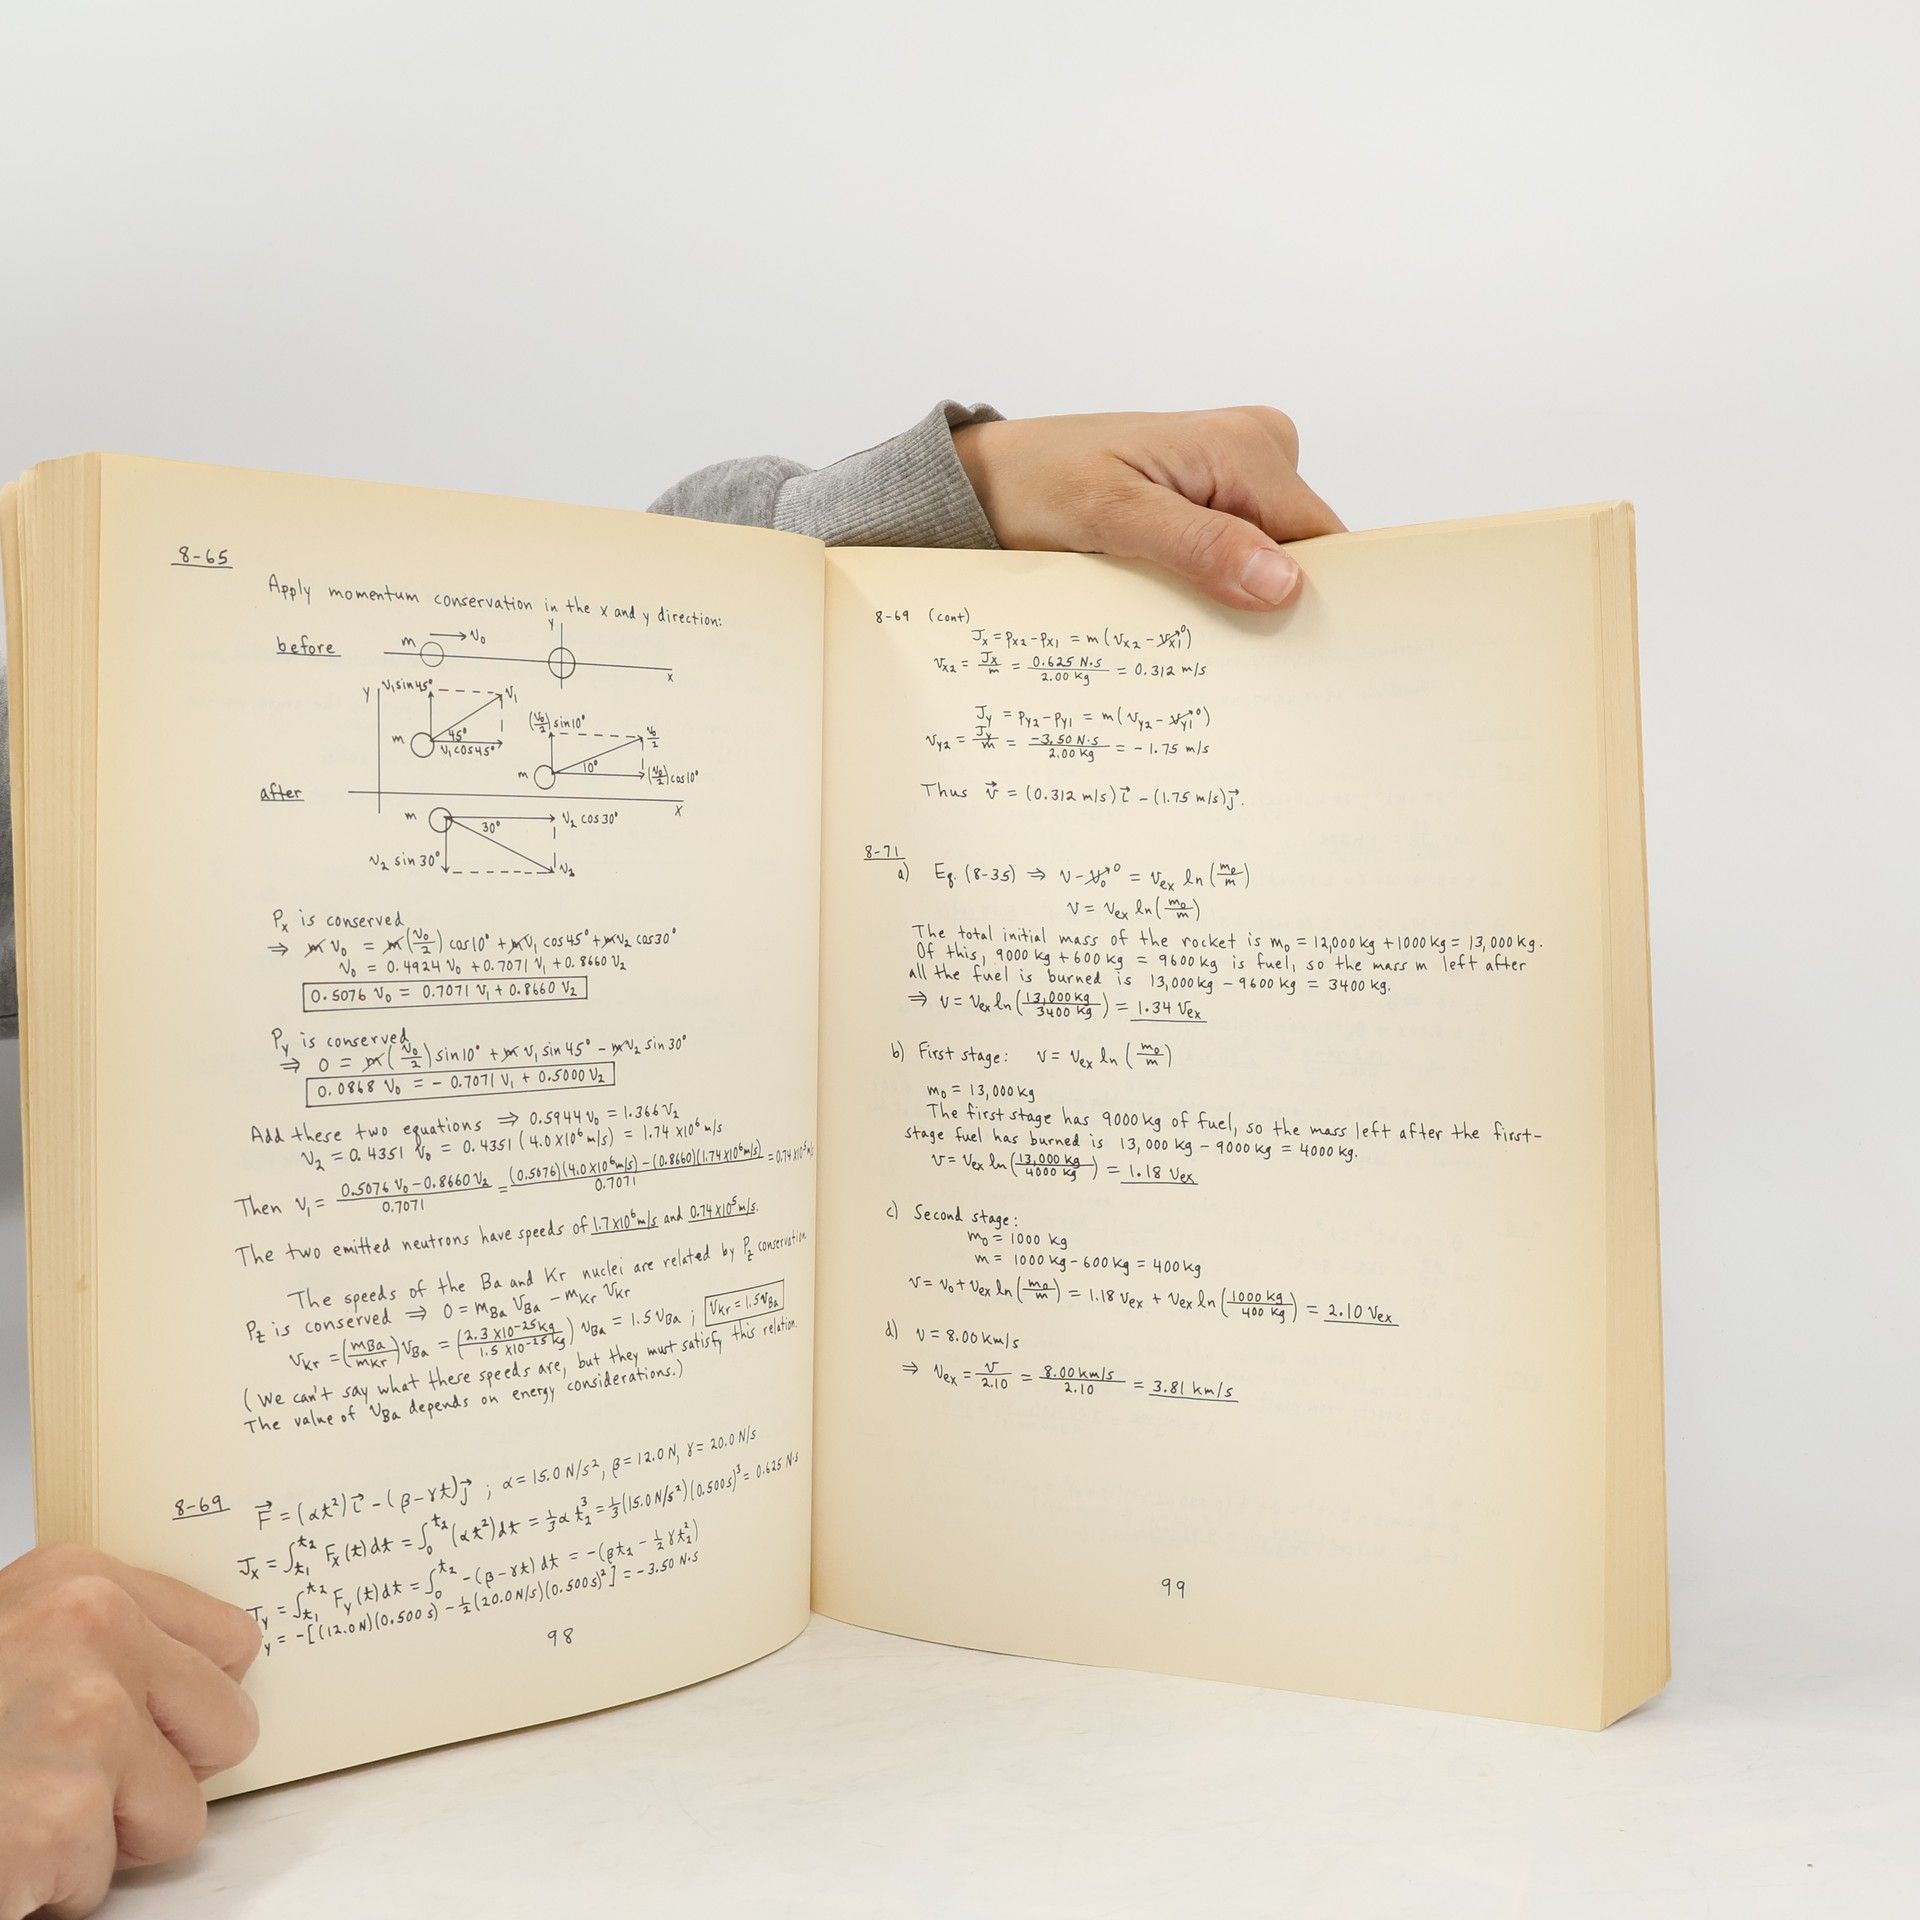 8-65
Apply momentum conservation in the x and y direction:
before
m
v₀
y
x
y
v₁sin45°
v₁
m
45°
v₁cos45°
(v₀/2)sin10°
v₀/2
m
10°
(v₀/2)cos10°
after
x
m
30°
v₂ cos30°
v₂ sin30°
v₂
Pₓ is conserved
⇒ m v₀ = m(v₀/2) cos10° + mv₁ cos45° + mv₂ cos30°
v₀ = 0.4924 v₀ + 0.7071 v₁ + 0.8660 v₂
0.5076 v₀ = 0.7071 v₁ + 0.8660 v₂
P_y is conserved
⇒ 0 = m(v₀/2) sin10° + m v₁ sin45° - mv₂ sin30°
0.0868 v₀ = - 0.7071 v₁ + 0.5000 v₂
Add these two equations ⇒ 0.5944 v₀ = 1.366 v₂
v₂ = 0.4351 v₀ = 0.4351 (4.0×10⁶ m/s) = 1.74 ×10⁶ m/s
Then v₁ = (0.5076 v₀ - 0.8660 v₂)/0.7071 = ((0.5076)(4.0×10⁶ m/s) - (0.8660)(1.74×10⁶ m/s))/0.7071 = 0.74×10⁵ m/s
The two emitted neutrons have speeds of 1.7×10⁶ m/s and 0.74×10⁵ m/s.
The speeds of the Ba and Kr nuclei are related by P_z conservation
P_z is conserved ⇒ 0 = m_Ba v_Ba - m_Kr v_Kr
v_Kr = (m_Ba/m_Kr) v_Ba = (2.3×10⁻²⁵ kg/1.5×10⁻²⁵ kg) v_Ba = 1.5 v_Ba ; v_Kr = 1.5 v_Ba
(We can't say what these speeds are, but they must satisfy this relation.
The value of v_Ba depends on energy considerations.)
8-69 F⃗ = (αt²)i⃗ - (β-γt)j⃗ ; α = 15.0 N/s², β = 12.0 N, γ = 20.0 N/s
Jₓ = ∫_t₁^t₂ Fₓ(t)dt = ∫₀^t₂ (αt²)dt = ⅓αt₂³ = ⅓(15.0 N/s²)(0.500s)³ = 0.625 N·s
J_y = ∫_t₁^t₂ F_y(t)dt = ∫₀^t₂ -(β-γt)dt = -(βt₂ - ½γt₂²)
y = -[(12.0N)(0.500 s) - ½(20.0N/s)(0.500s)²] = -3.50 N·s
98
8-69 (cont)
Jₓ = pₓ₂ - pₓ₁ = m(vₓ₂ - vₓ₁→0)
vₓ₂ = Jₓ/m = 0.625 N·s/2.00 kg = 0.312 m/s
J_y = p_y2 - p_y1 = m(v_y2 - v_y1→0)
v_y2 = J_y/m = -3.50 N·s/2.00 kg = -1.75 m/s
Thus v⃗ = (0.312 m/s)i⃗ - (1.75 m/s)j⃗.
8-71
a) Eq. (8-35) ⇒ v - v₀→0 = v_ex ln(m₀/m)
v = v_ex ln(m₀/m)
The total initial mass of the rocket is m₀ = 12,000 kg + 1000 kg = 13,000 kg.
Of this, 9000 kg + 600 kg = 9600 kg is fuel, so the mass m left after
all the fuel is burned is 13,000 kg - 9600 kg = 3400 kg.
⇒ v = v_ex ln(13,000 kg/3400 kg) = 1.34 v_ex
b) First stage: v = v_ex ln(m₀/m)
m₀ = 13,000 kg
The first stage has 9000 kg of fuel, so the mass left after the first-
stage fuel has burned is 13,000 kg - 9000 kg = 4000 kg.
v = v_ex ln(13,000 kg/4000 kg) = 1.18 v_ex
c) Second stage:
m₀ = 1000 kg
m = 1000 kg - 600 kg = 400 kg
v = v₀ + v_ex ln(m₀/m) = 1.18 v_ex + v_ex ln(1000 kg/400 kg) = 2.10 v_ex
d) v = 8.00 km/s
⇒ v_ex = v/2.10 = 8.00 km/s/2.10 = 3.81 km/s
99